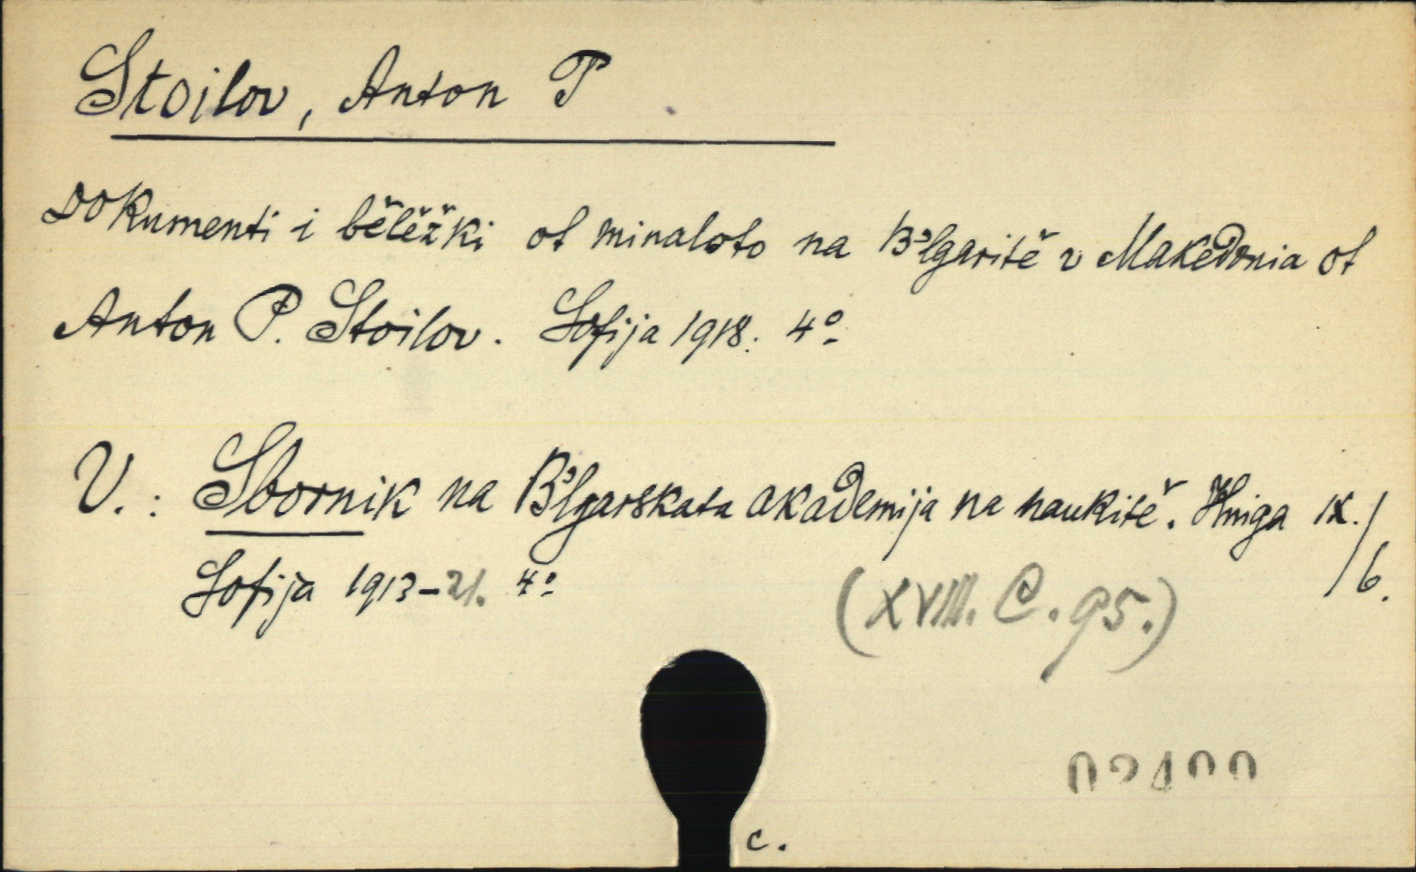 Stoilov, Anton P
Dokumenti i bělěžki ot minaloto na B'lgaritě v Makedonia ot
Anton P. Stoilov. Sofija 1918. 4º
V.: Sbornik na B'lgarskata akademija na naukitě. Kniga IX./
6.
Sofija 1913-21. 4º
(XVIII. C. 95.)
02400
c.